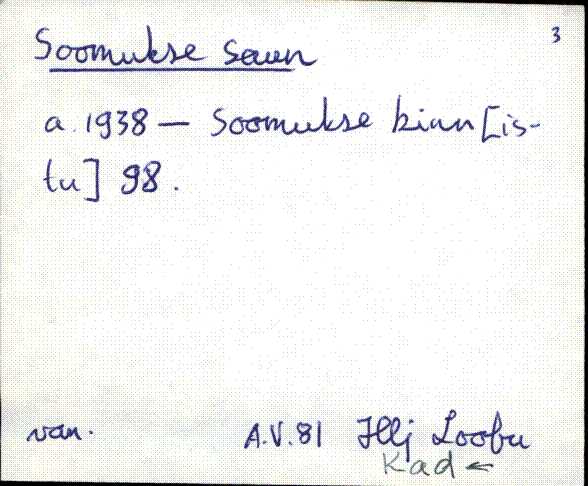 3
Soomukse saun
a. 1938 — Soomukse kinn[is-
tu] 98.
van. A.V. 81 Hlj Loobu
Kad ←